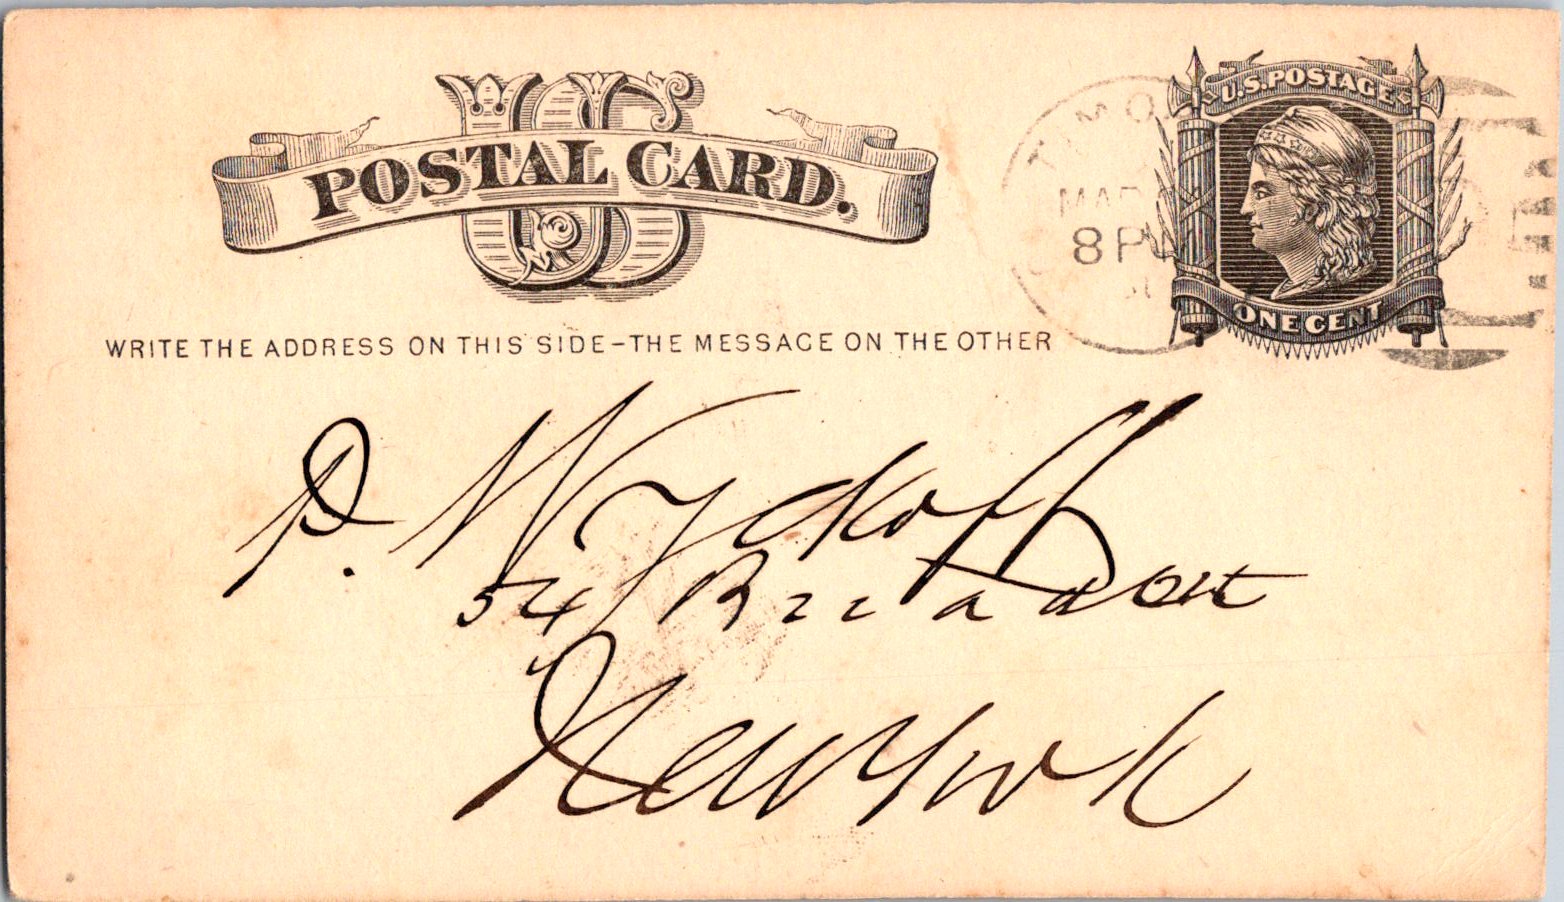 US
POSTAL CARD.
U.S. POSTAGE
TIMO
MAR
8 PM
ONE CENT
WRITE THE ADDRESS ON THIS SIDE-THE MESSAGE ON THE OTHER
P. Wyckoff
54
New York